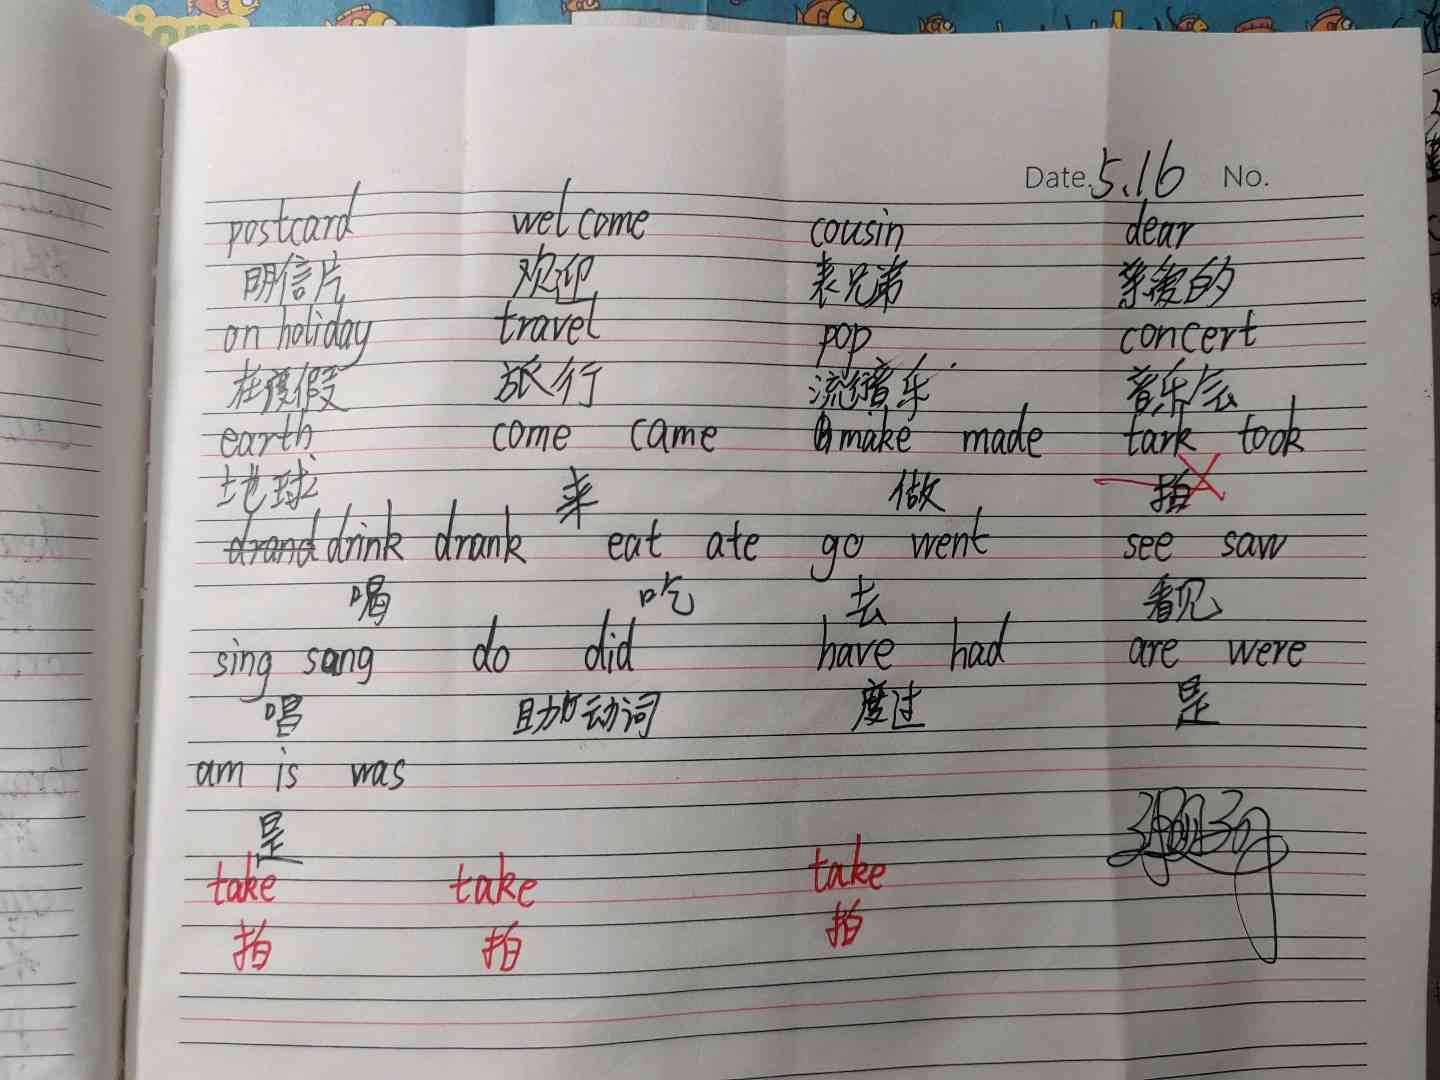 Date. 5.16 No.
postcard welcome cousin dear
明信片 欢迎 表兄弟 亲爱的
on holiday travel pop concert
在度假 旅行 流行音乐 音乐会
earth come came make made tark took
地球 来 做 拍
drand drink drank eat ate go went see saw
喝 吃 去 看见
sing sang do did have had are were
唱 助动词 度过 是
am is was
是
take take take
拍 拍 拍